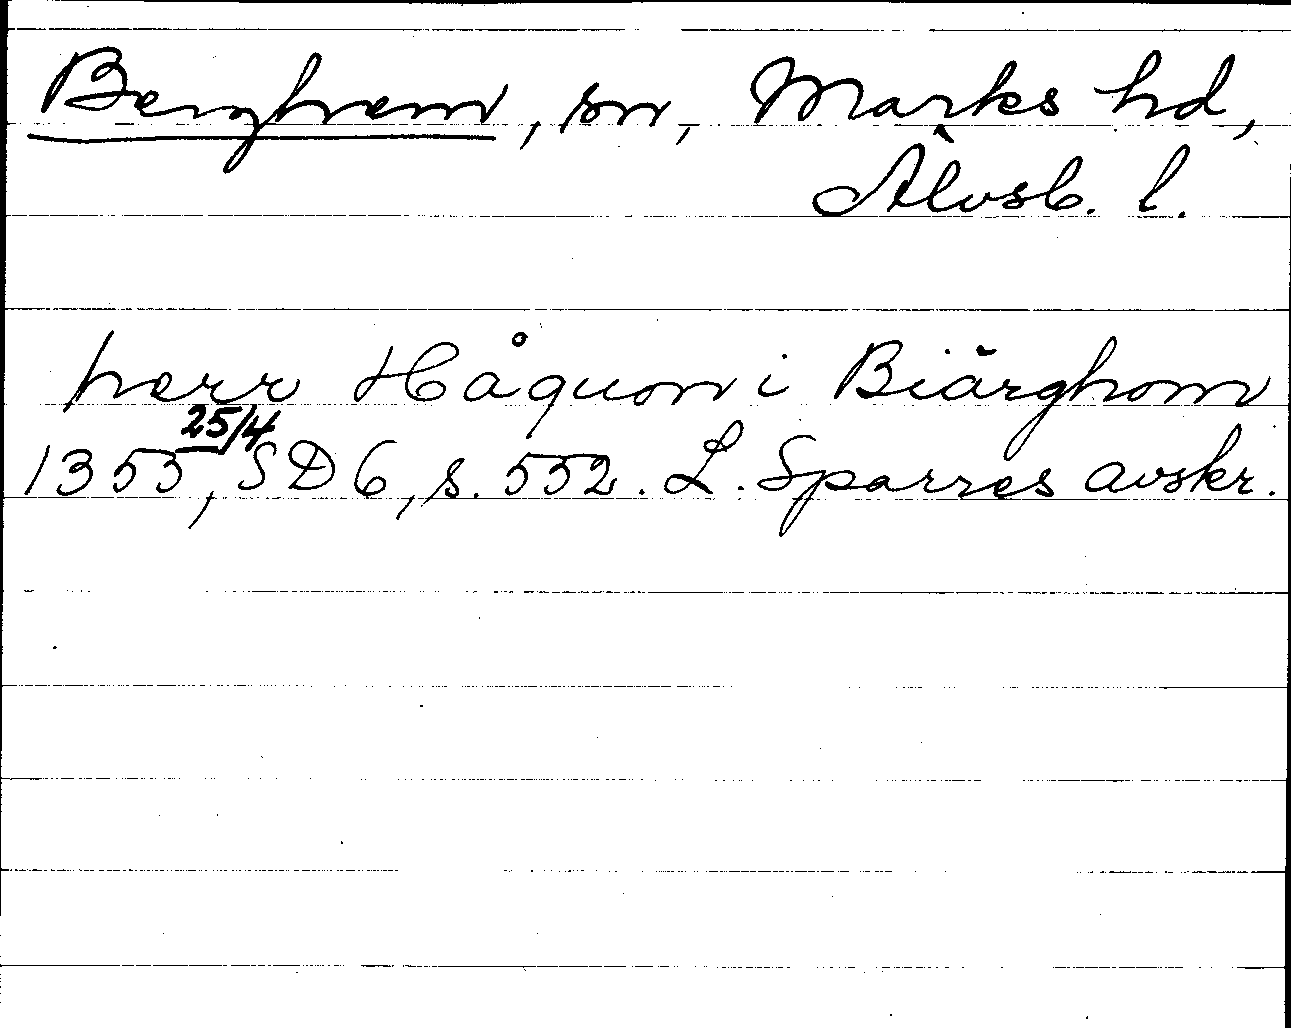 Berghem, sn, Marks hd,
Älvsb. l.
herr Håquon i Biärghom
25/4
1355, SD 6, s. 552. L. Sparres avskr.